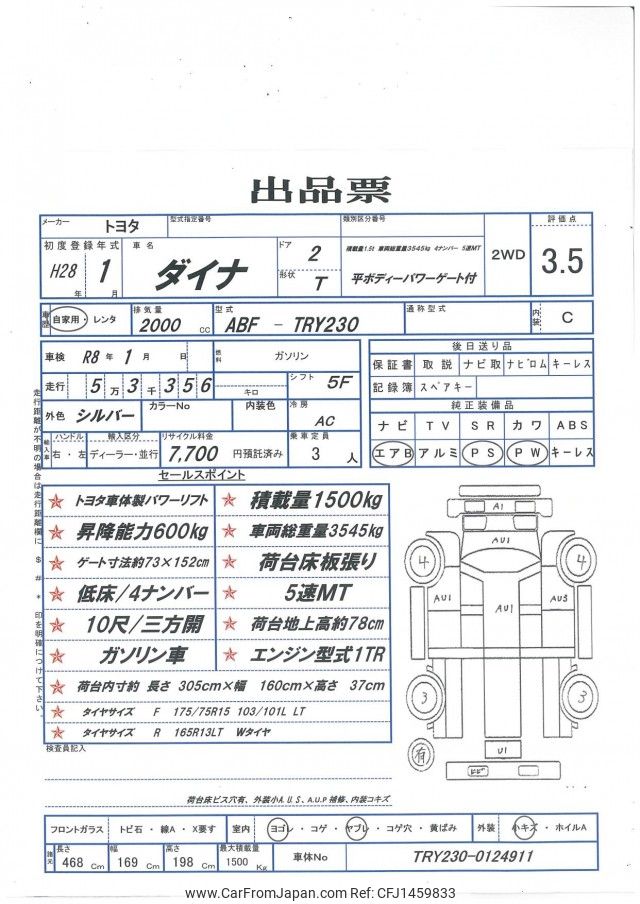 出品票
メーカー トヨタ 型式指定番号 類別区分番号 評価点
初度登録年式 車名 ドア 2 積載量1.5t 車両総重量3545kg 4ナンバー 5速MT 2WD 3.5
H28年 1月 ダイナ 形状 T 平ボディーパワーゲート付
車歴 自家用・レンタ 排気量 2000 cc 型式 ABF - TRY230 通称型式 内装 C
車検 R8年 1月 日 燃料 ガソリン 後日送り品
保証書 取説 ナビ取 ナビロム キーレス
走行 5万3千356 キロ シフト 5F 記録簿 スペアキー
外色 シルバー カラーNo 内装色 冷房 AC 純正装備品
ナビ TV SR カワ ABS
輸入車 ハンドル 右・左 輸入区分 ディーラー・並行 リサイクル料金 7,700 円預託済み 乗車定員 3人 エアB アルミ PS PW キーレス
走行距離が不明の場合は走行距離欄に $ # * 印を明確につけて下さい。
セールスポイント
トヨタ車体製パワーリフト 積載量1500kg
昇降能力600kg 車両総重量3545kg
ゲート寸法約73×152cm 荷台床板張り
低床/4ナンバー 5速MT
10尺/三方開 荷台地上高約78cm
ガソリン車 エンジン型式1TR
荷台内寸約 長さ 305cm×幅 160cm×高さ 37cm
タイヤサイズ F 175/75R15 103/101L LT
タイヤサイズ R 165R13LT Wタイヤ
A1
AU1
4 4
AU1 AU1 AU3
3 3
有 U1
ﾋﾞﾋﾞ
検査員記入
荷台床ビス穴有、外装小A.U.S、A.U.P補修、内装コキズ
フロントガラス トビ石・線A・X要す 室内 ヨゴレ・コゲ・ヤブレ・コゲ穴・黄ばみ 外装 小キズ・ホイルA
諸元 長さ 468 Cm 幅 169 Cm 高さ 198 Cm 最大積載量 1500 Kg 車体No TRY230-0124911
www.CarFromJapan.com Ref: CFJ1459833